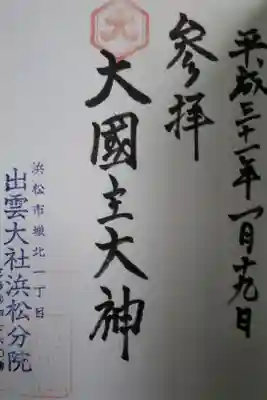 平成三十一年一月十九日
参拝
大國主大神
浜松市城北一丁目
出雲大社浜松分院